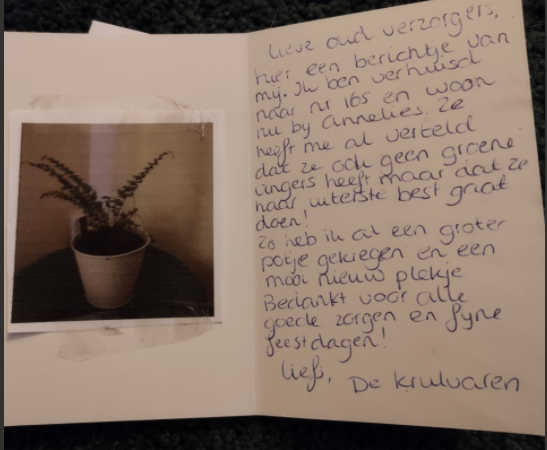 lieve oud verzorgers,
hier een berichtje van
mij. Ik ben verhuisd
naar nr 165 en woon
nu bij Annelies. Ze
heeft me al verteld
dat ze ook geen groene
vingers heeft maar dat ze
haar uiterste best gaat
doen!
Zo heb ik al een groter
potje gekregen en een
mooi nieuw plekje
Bedankt voor alle
goede zorgen en fijne
feestdagen!
liefs, De krulvaren